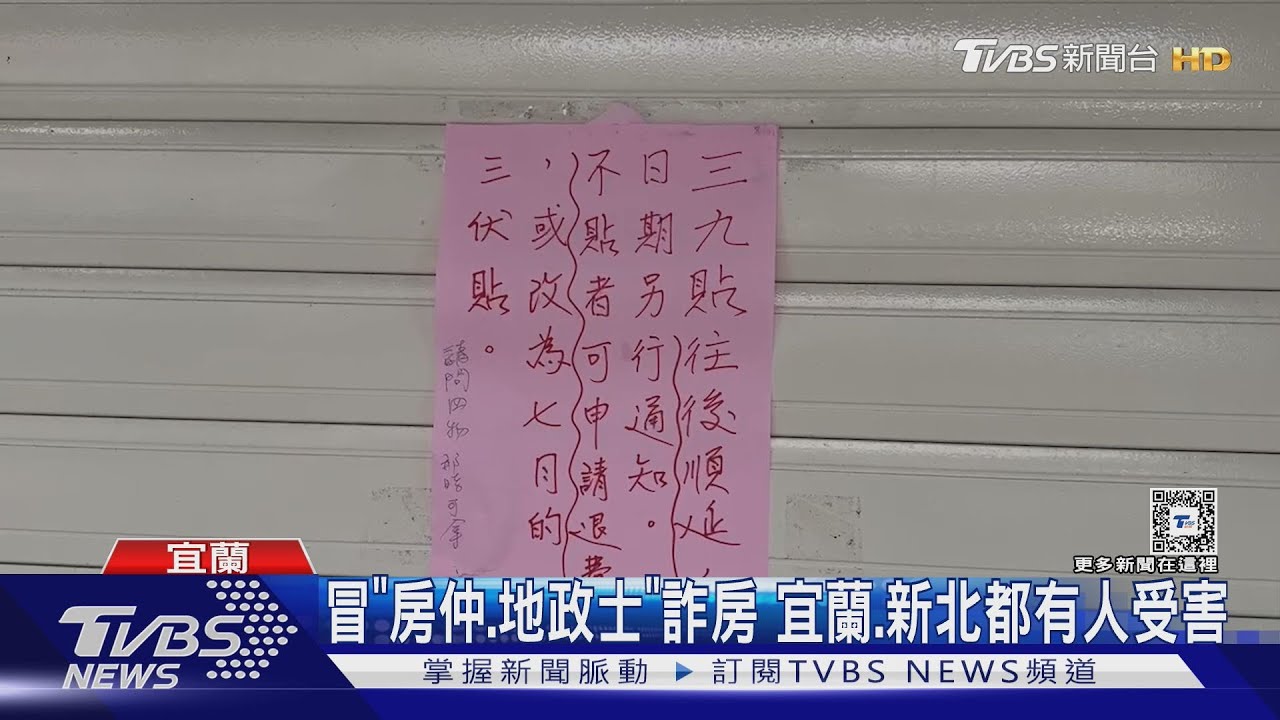 TVBS新聞台 HD
三九貼往後順延，
日期另行通知。
不貼者可申請退費
，或改為七月的
三伏貼。
請問四物 那時可拿
更多新聞在這裡
宜蘭
冒"房仲.地政士"詐房 宜蘭.新北都有人受害
TVBS NEWS
掌握新聞脈動 ▶ 訂閱TVBS NEWS頻道